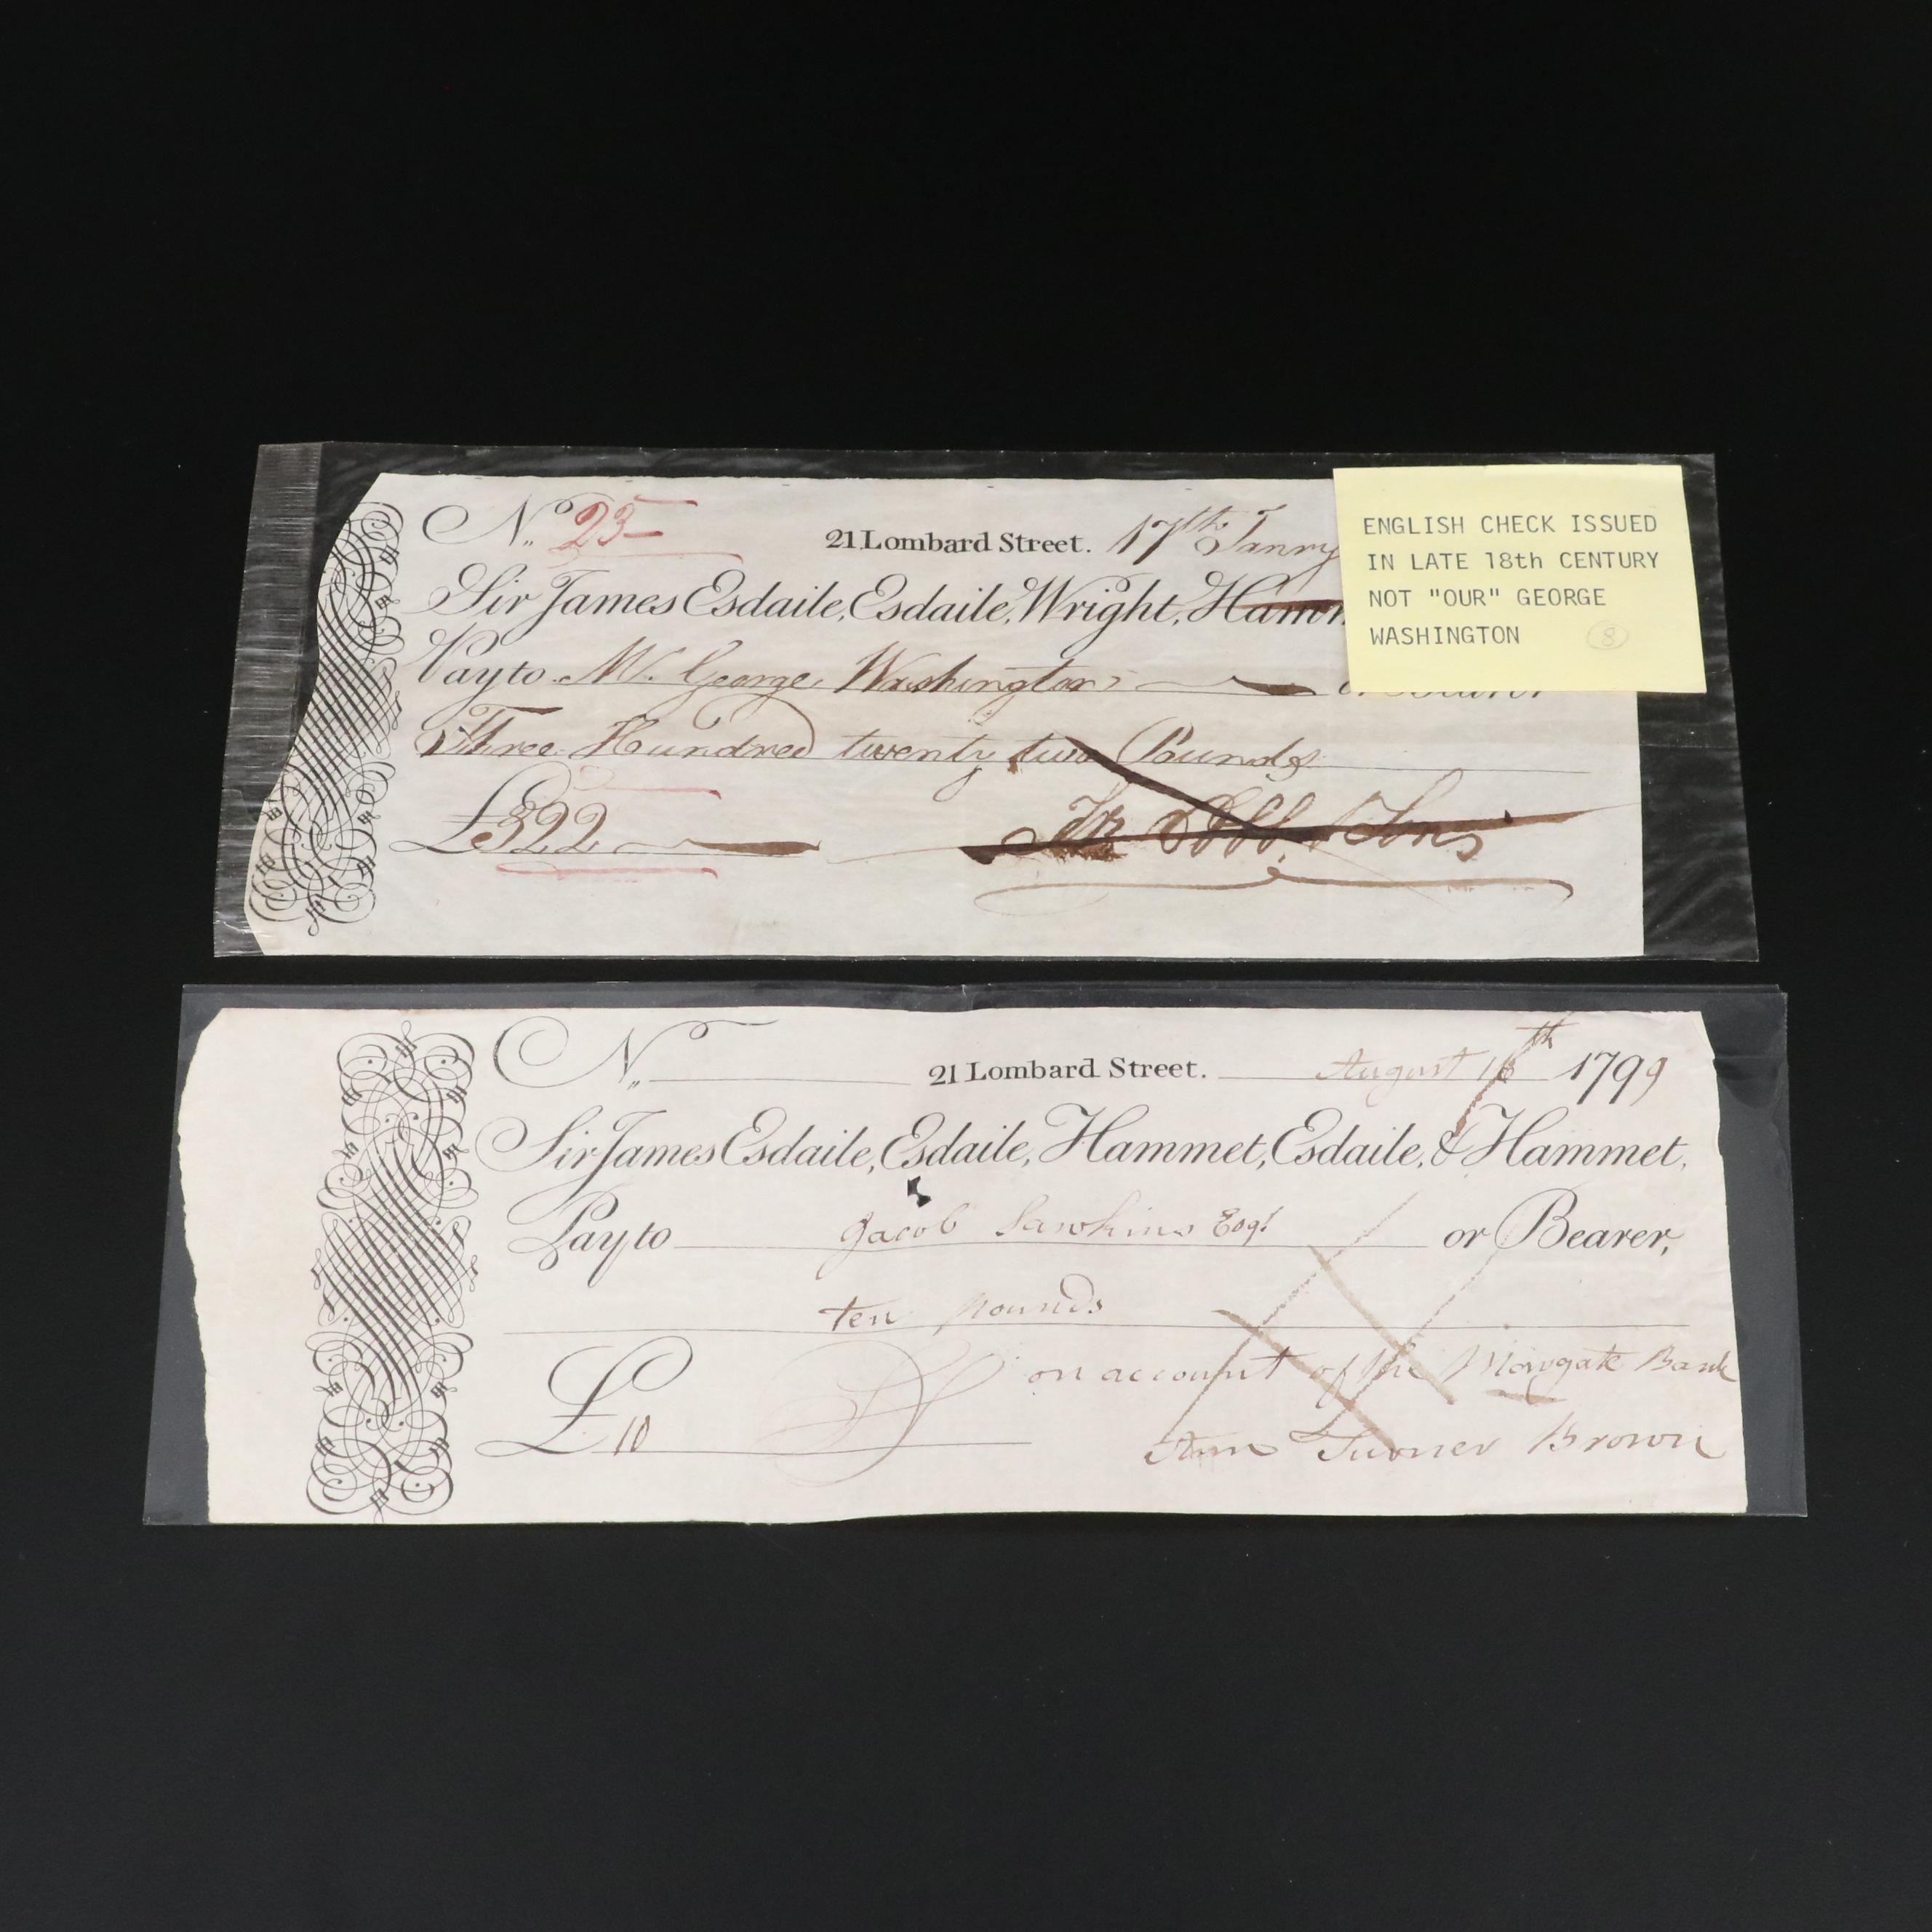 No. 23
21 Lombard Street. 17th Janry
Sir James Esdaile, Esdaile, Wright, Hamm
Pay to Mr. George Washington
Three Hundred twenty two Pounds
£322
& Sons
ENGLISH CHECK ISSUED
IN LATE 18th CENTURY
NOT "OUR" GEORGE
WASHINGTON 8
No.
21 Lombard Street. August 16th 1799
Sir James Esdaile, Esdaile, Hammet, Esdaile, & Hammet,
Pay to Jacob Sawkins Esqr or Bearer,
ten pounds
on account of the Margate Bank
£ 10
Turner Brown